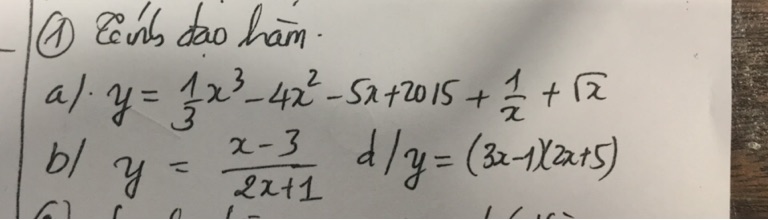 ① Tính đạo hàm.
a/. y = 1/3 x³ - 4x² - 5x + 2015 + 1/x + √x
b/ y = (x-3)/(2x+1) d/ y = (3x-1)(2x+5)